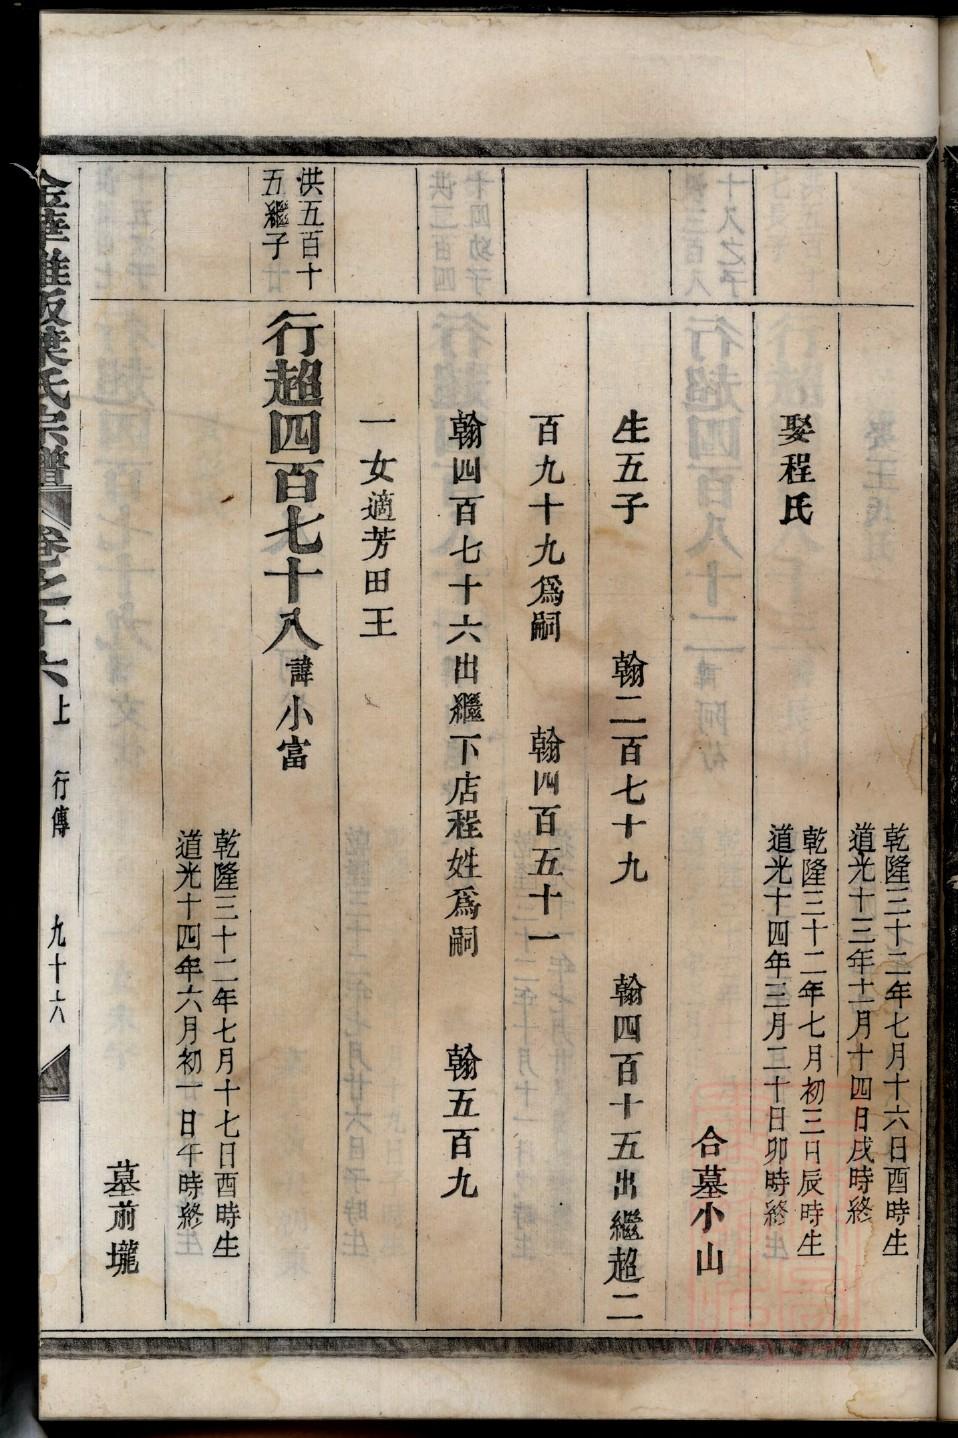 乾隆三十二年七月十六日酉時生
道光十三年十一月十四日戌時終
娶程氏
乾隆三十二年七月初三日辰時生
道光十四年三月二十日卯時終
合墓小山
生五子　翰二百七十九　翰四百十五出繼超二
百九十九爲嗣　翰四百五十一
翰四百七十六出繼下店程姓爲嗣　翰五百九
一女適芳田王
洪五百十
五繼子
行超四百七十八諱小富
乾隆三十二年七月十七日酉時生
道光十四年六月初一日午時終
墓前壠
金華 版葉氏宗譜 卷之十六上 行傳 九十六